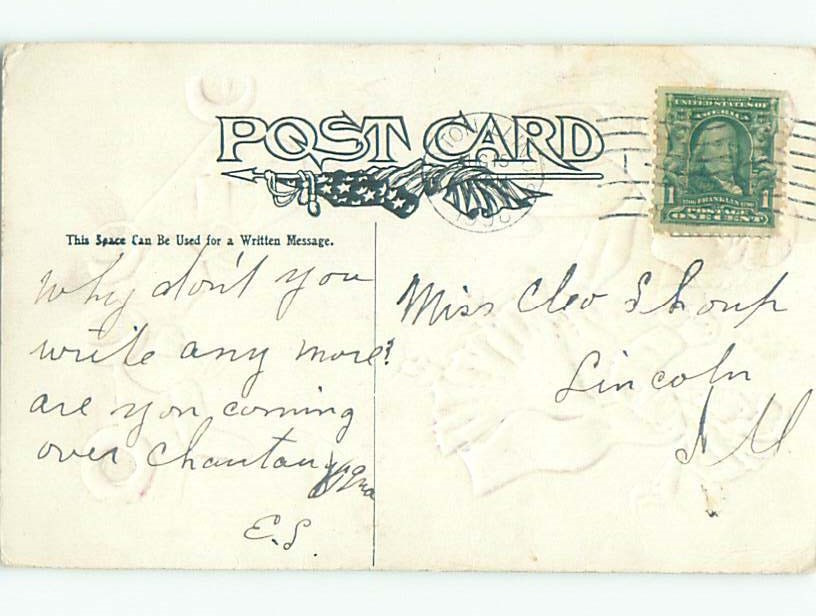 POST CARD
UNITED STATES OF
AMERICA
1 FRANKLIN 1
POSTAGE
ONE CENT
1908
This Space Can Be Used for a Written Message.
Why don't you
write any more?
are you coming
over Chautauqua
E.S.
Miss Cleo Shoup
Lincoln
Ill